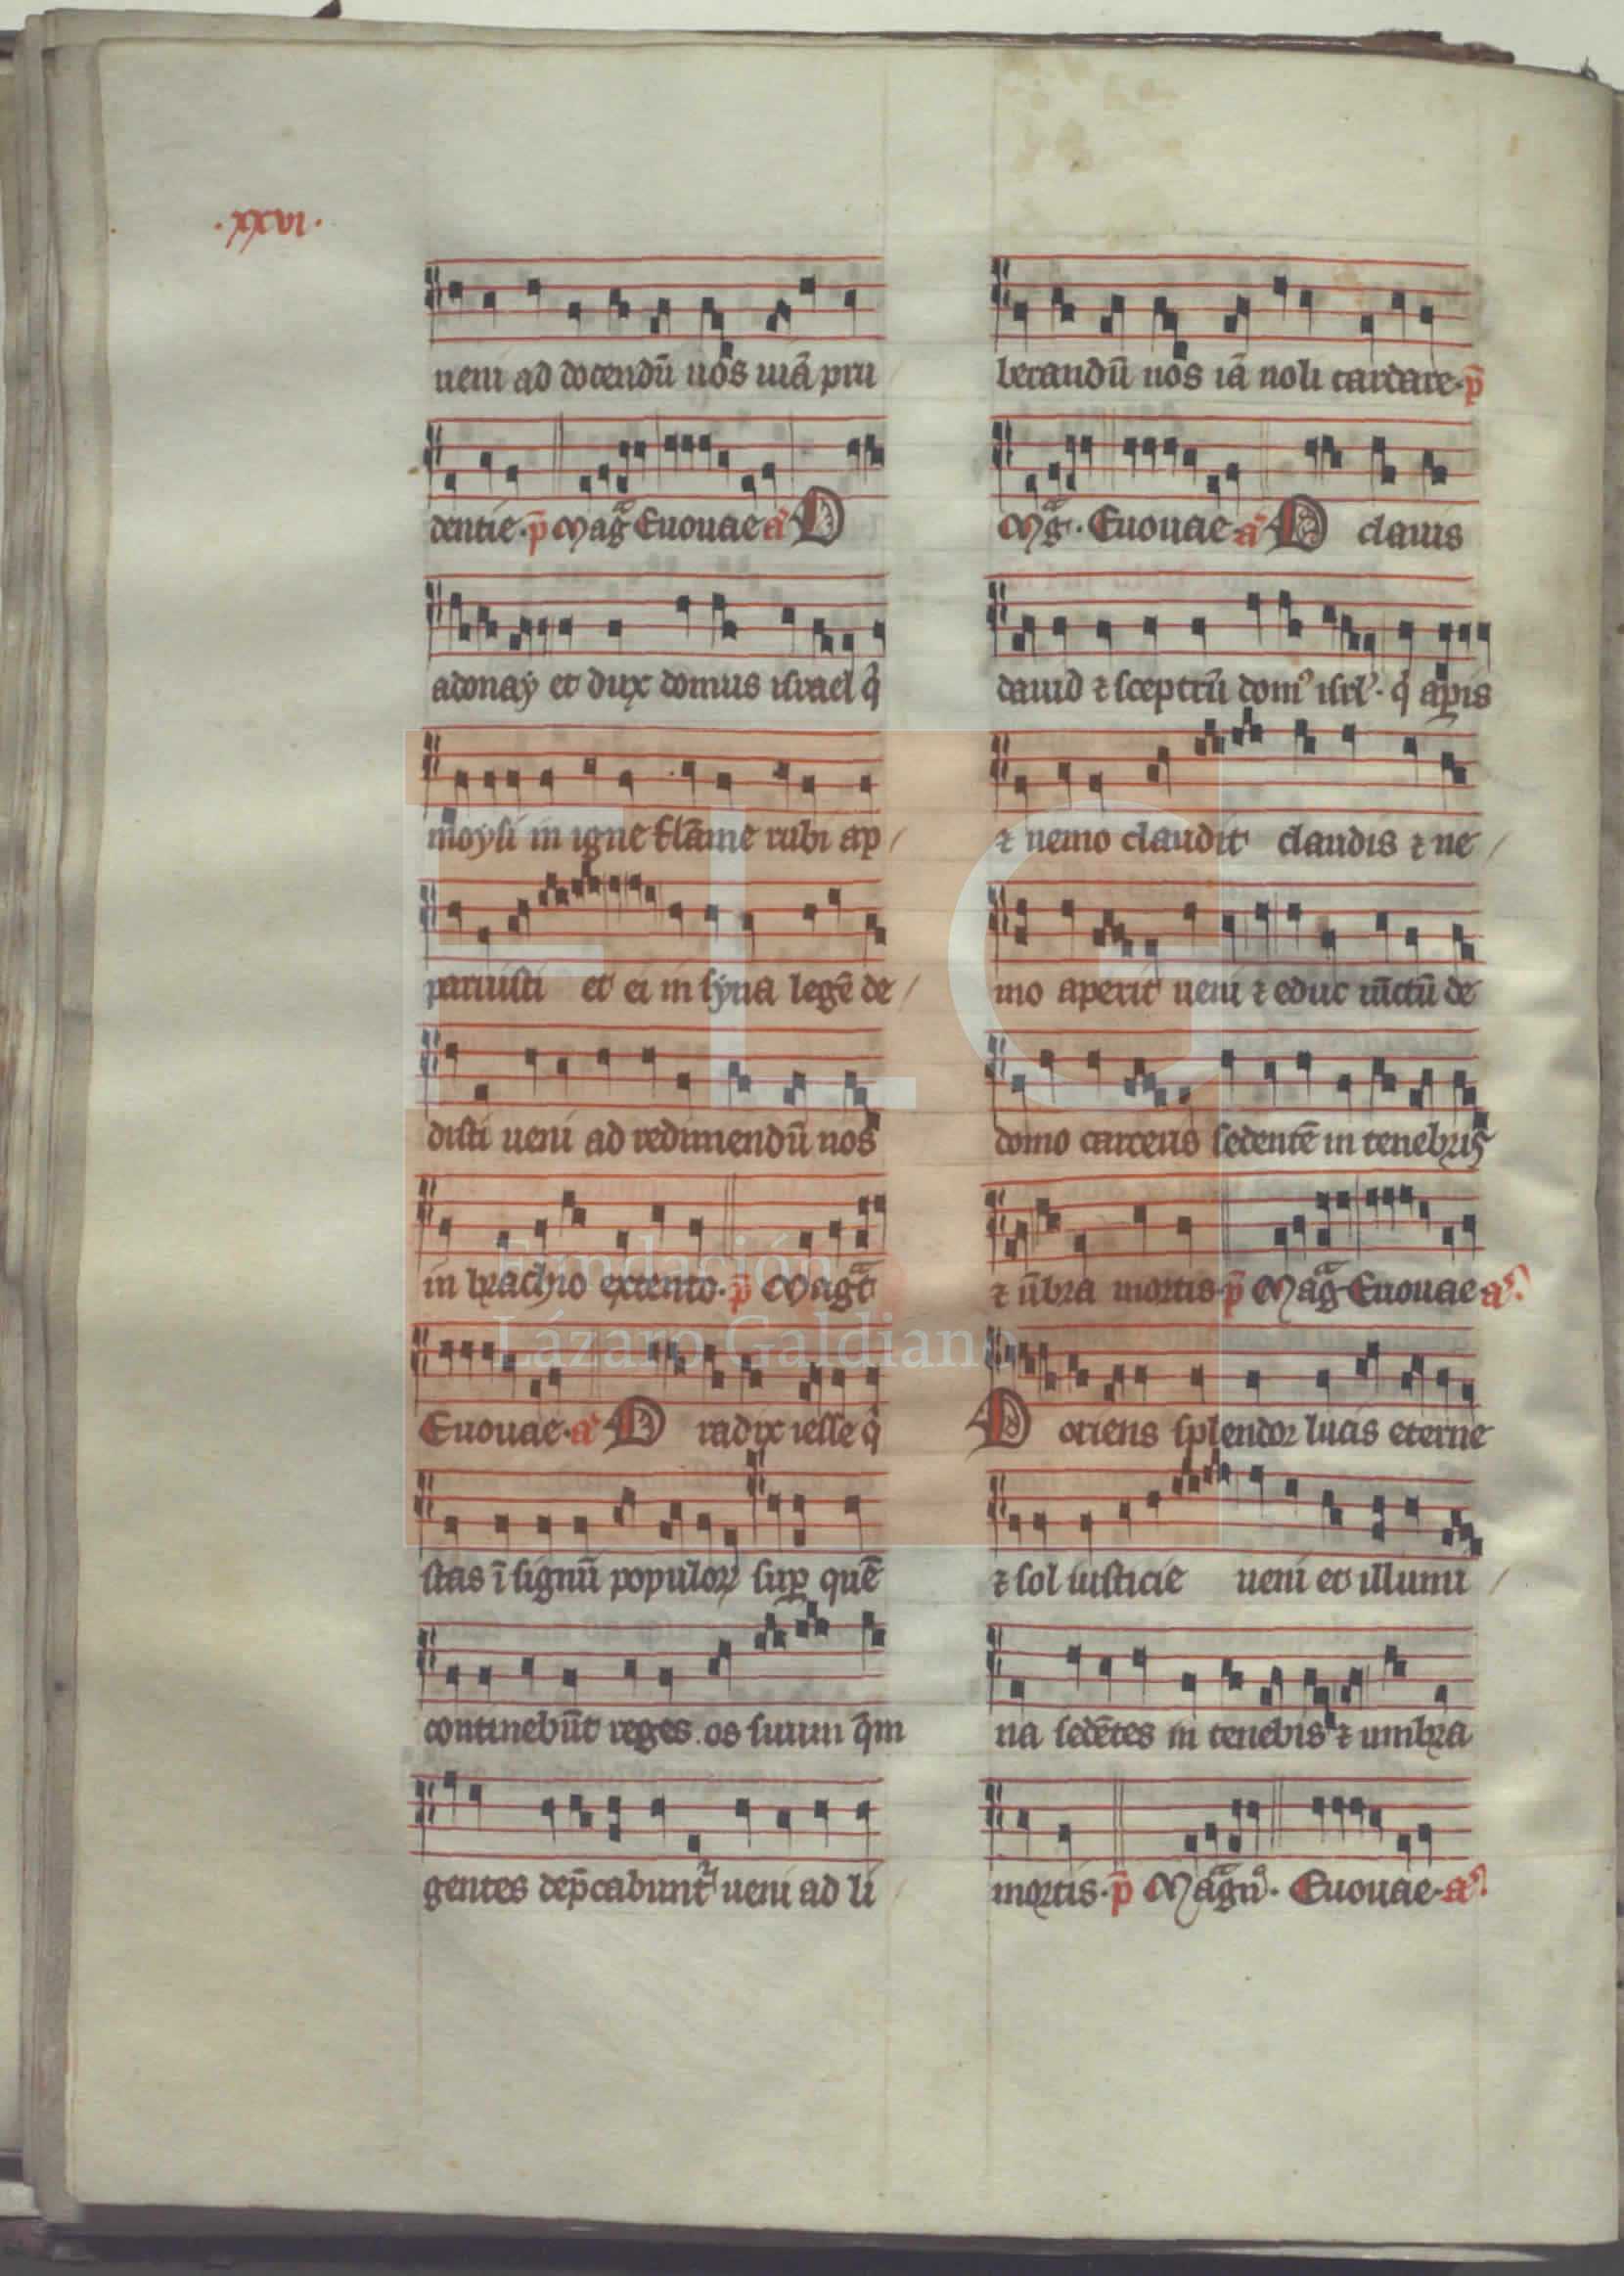 ·xxvi·
ueni ad docendū nos uiā pru
dentie· p̄ Mag̃ Euouae a᷒ O
adonaÿ et dux domus israel q̇
moysi in igne flāme rubi ap/
paruisti et ei in syna legē de/
disti ueni ad redimendū nos
in brachio extento· p̄ Mag̃t
Euouae· a᷒ O radix iesse q̇
stas ī signū populoꝝ suꝑ quē
continebūt reges os suum q̄m
gentes dep̄cabunt᷑ ueni ad li
berandū nos iā noli tardare· p̄
Mg̃· Euouae· a᷒ O clauis
dauid ⁊ sceptrū domꝰ isrl᷒· q̇ aꝑis
⁊ nemo claudit claudis ⁊ ne/
mo aperit ueni ⁊ educ uīctū de
domo carceris sedentē in tenebris
⁊ ūbra mortis· p̄ Mag̃ Euouae a᷒·
O oriens splendor lucis eterne
⁊ sol iusticie ueni et illumi/
na sedētes in tenebis ⁊ umbra
mortis· p̄ Mag̃n̄· Euouae· a᷒·
FLG
Fundación
Lázaro Galdiano